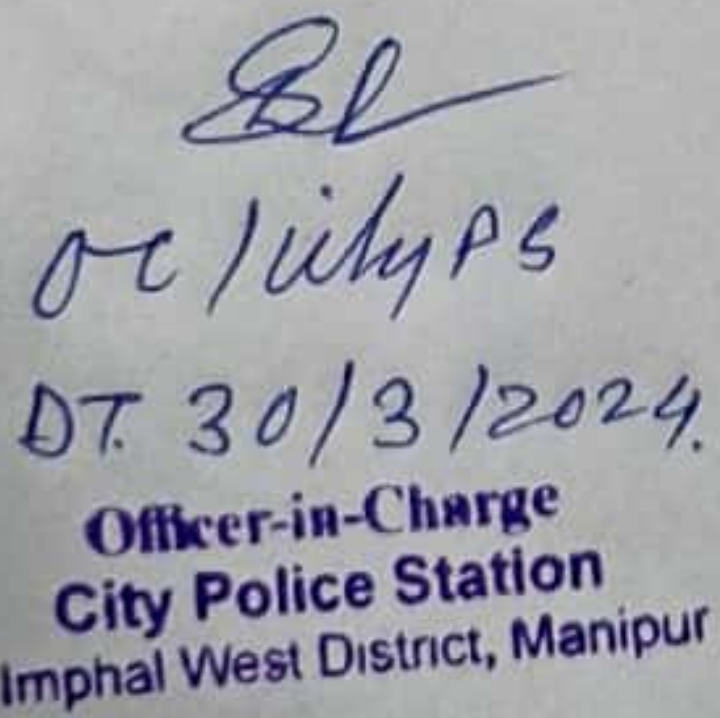 OC/City PS
DT. 30/3/2024.
Officer-in-Charge
City Police Station
Imphal West District, Manipur